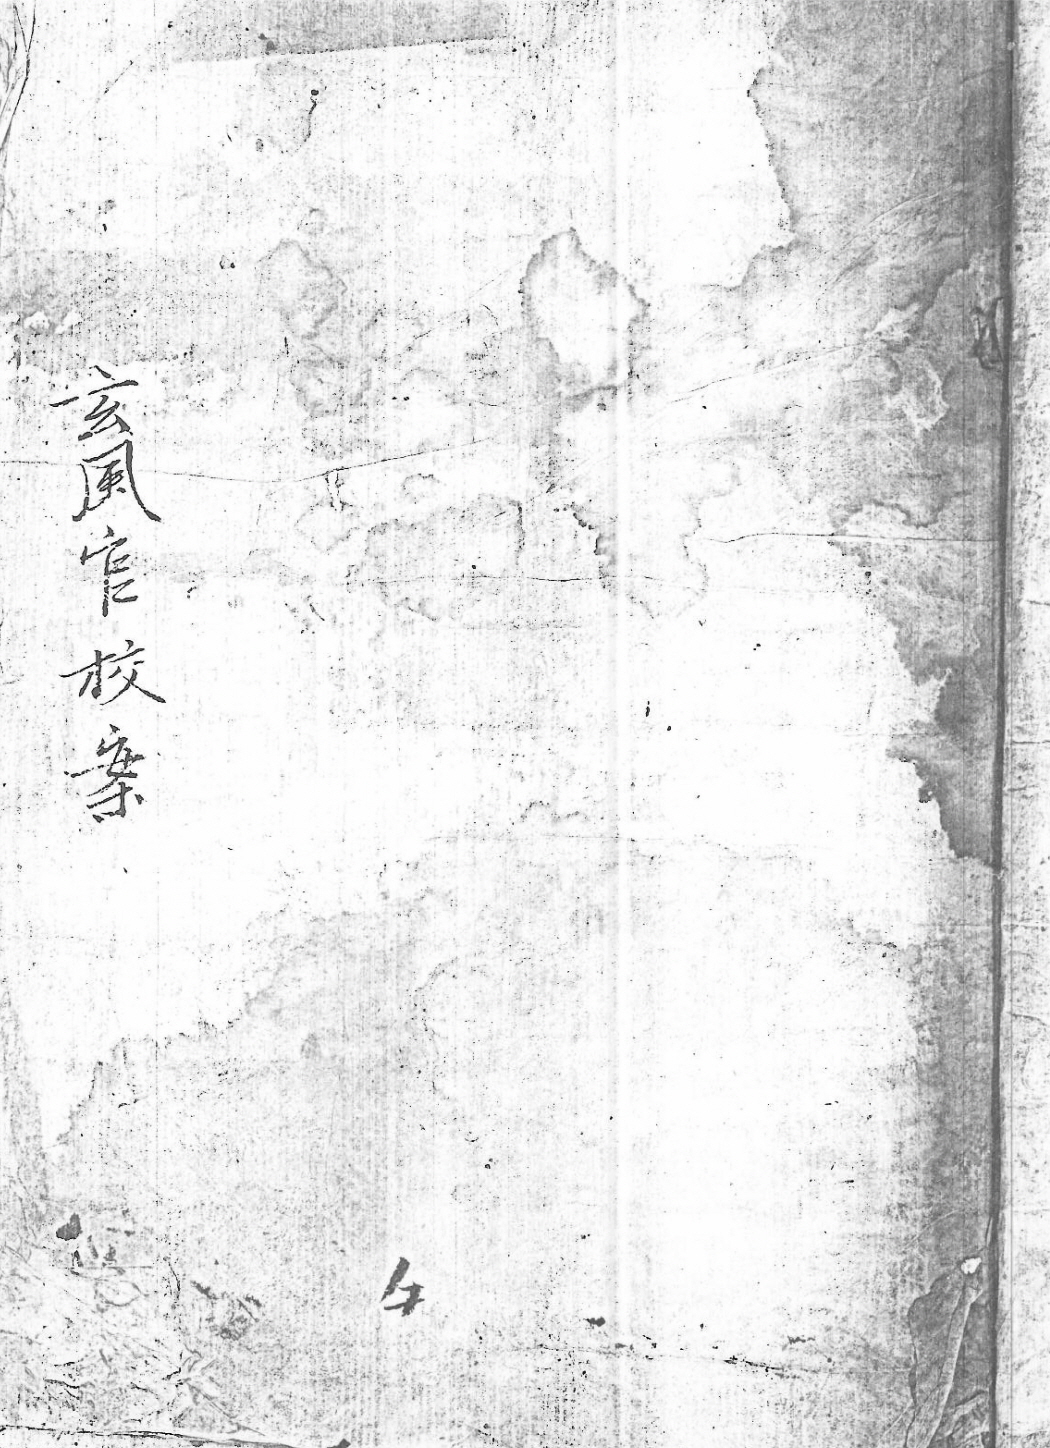 玄風官校案